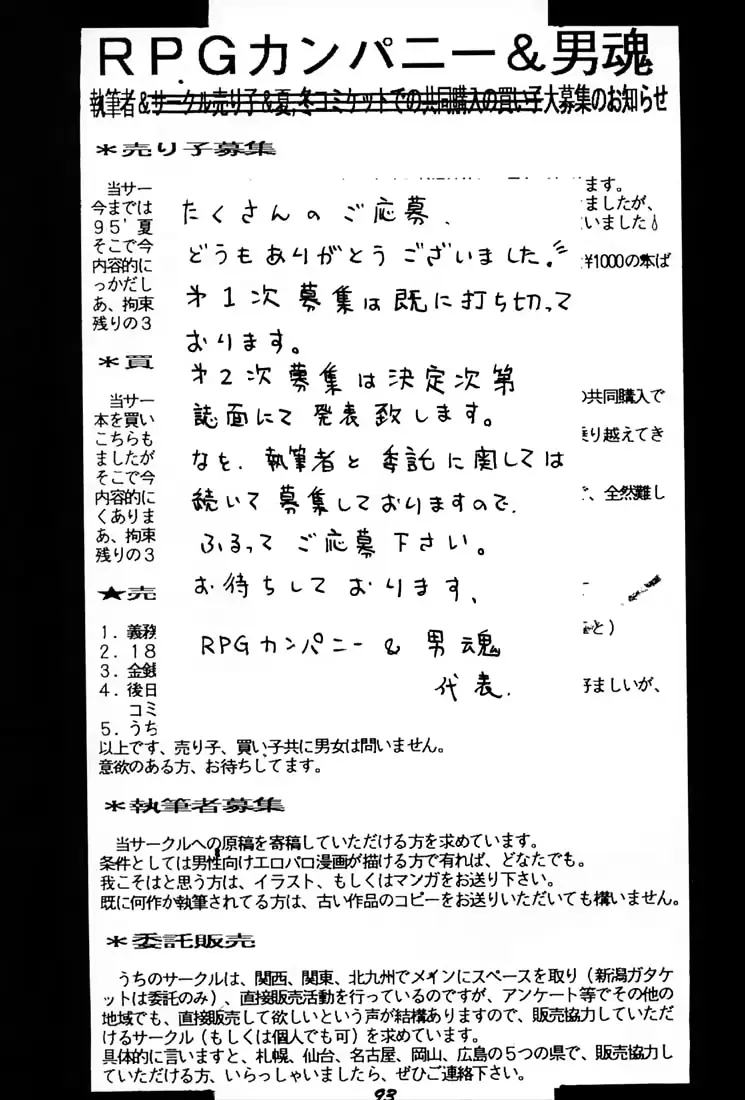 RPGカンパニー&男魂
執筆者&サークル売り子&夏,冬コミケットでの共同購入の買い子大募集のお知らせ
*売り子募集
当サー
ます。
今までは
ましたが、
95'夏
いました
そこで今
内容的に
¥1000の本ば
っかだし
あ、拘束
残りの3
たくさんのご応募、
どうもありがとうございました!
第1次募集は既に打ち切って
おります。
第2次募集は決定次第
誌面にて発表致します。
なを、執筆者と委託に関しては
続いて募集しておりますので、
ふるってご応募下さい。
お待ちしております、
RPGカンパニー & 男魂
代表.
*買
当サー
の共同購入で
本を買い
こちらも
乗り越えてき
ましたが
そこで今
内容的に
、全然難し
くありま
あ、拘束
残りの3
★売
1.義務
と)
2.18
3.金銭
4.後日
好ましいが、
コミ
5.うち
以上です、売り子、買い子共に男女は問いません。
意欲のある方、お待ちしてます。
*執筆者募集
当サークルへの原稿を寄稿していただける方を求めています。
条件としては男性向けエロパロ漫画が描ける方で有れば、どなたでも。
我こそはと思う方は、イラスト、もしくはマンガをお送り下さい。
既に何作か執筆されてる方は、古い作品のコピーをお送りいただいても構いません。
*委託販売
うちのサークルは、関西、関東、北九州でメインにスペースを取り(新潟ガタケ
ットは委託のみ)、直接販売活動を行っているのですが、アンケート等でその他の
地域でも、直接販売して欲しいという声が結構ありますので、販売協力していただ
けるサークル(もしくは個人でも可)を求めています。
具体的に言いますと、札幌、仙台、名古屋、岡山、広島の5つの県で、販売協力し
ていただける方、いらっしゃいましたら、ぜひご連絡下さい。
93